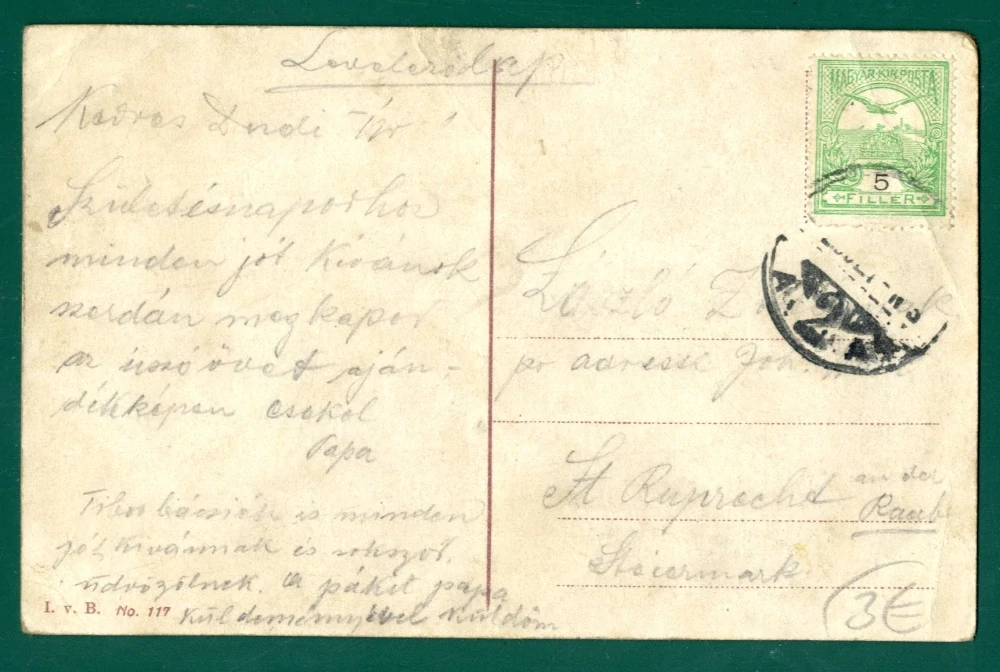 Levelezőlap
Kedves Dudi Úr
Születésnapodhoz
minden jót kivánok
szerdán megkapod
az úszóövet aján-
dékképen csókol
Papa
Tibor bácsiék is minden
jót kivánnak és sokszor
üdvözölnek. a pákét papa
küldeményével küldöm
I. v. B. No. 117
MAGYAR KIR. POSTA
5
FILLER
László
pr adresse Joh.
St Ruprecht an der
Raab
Steiermark
3€